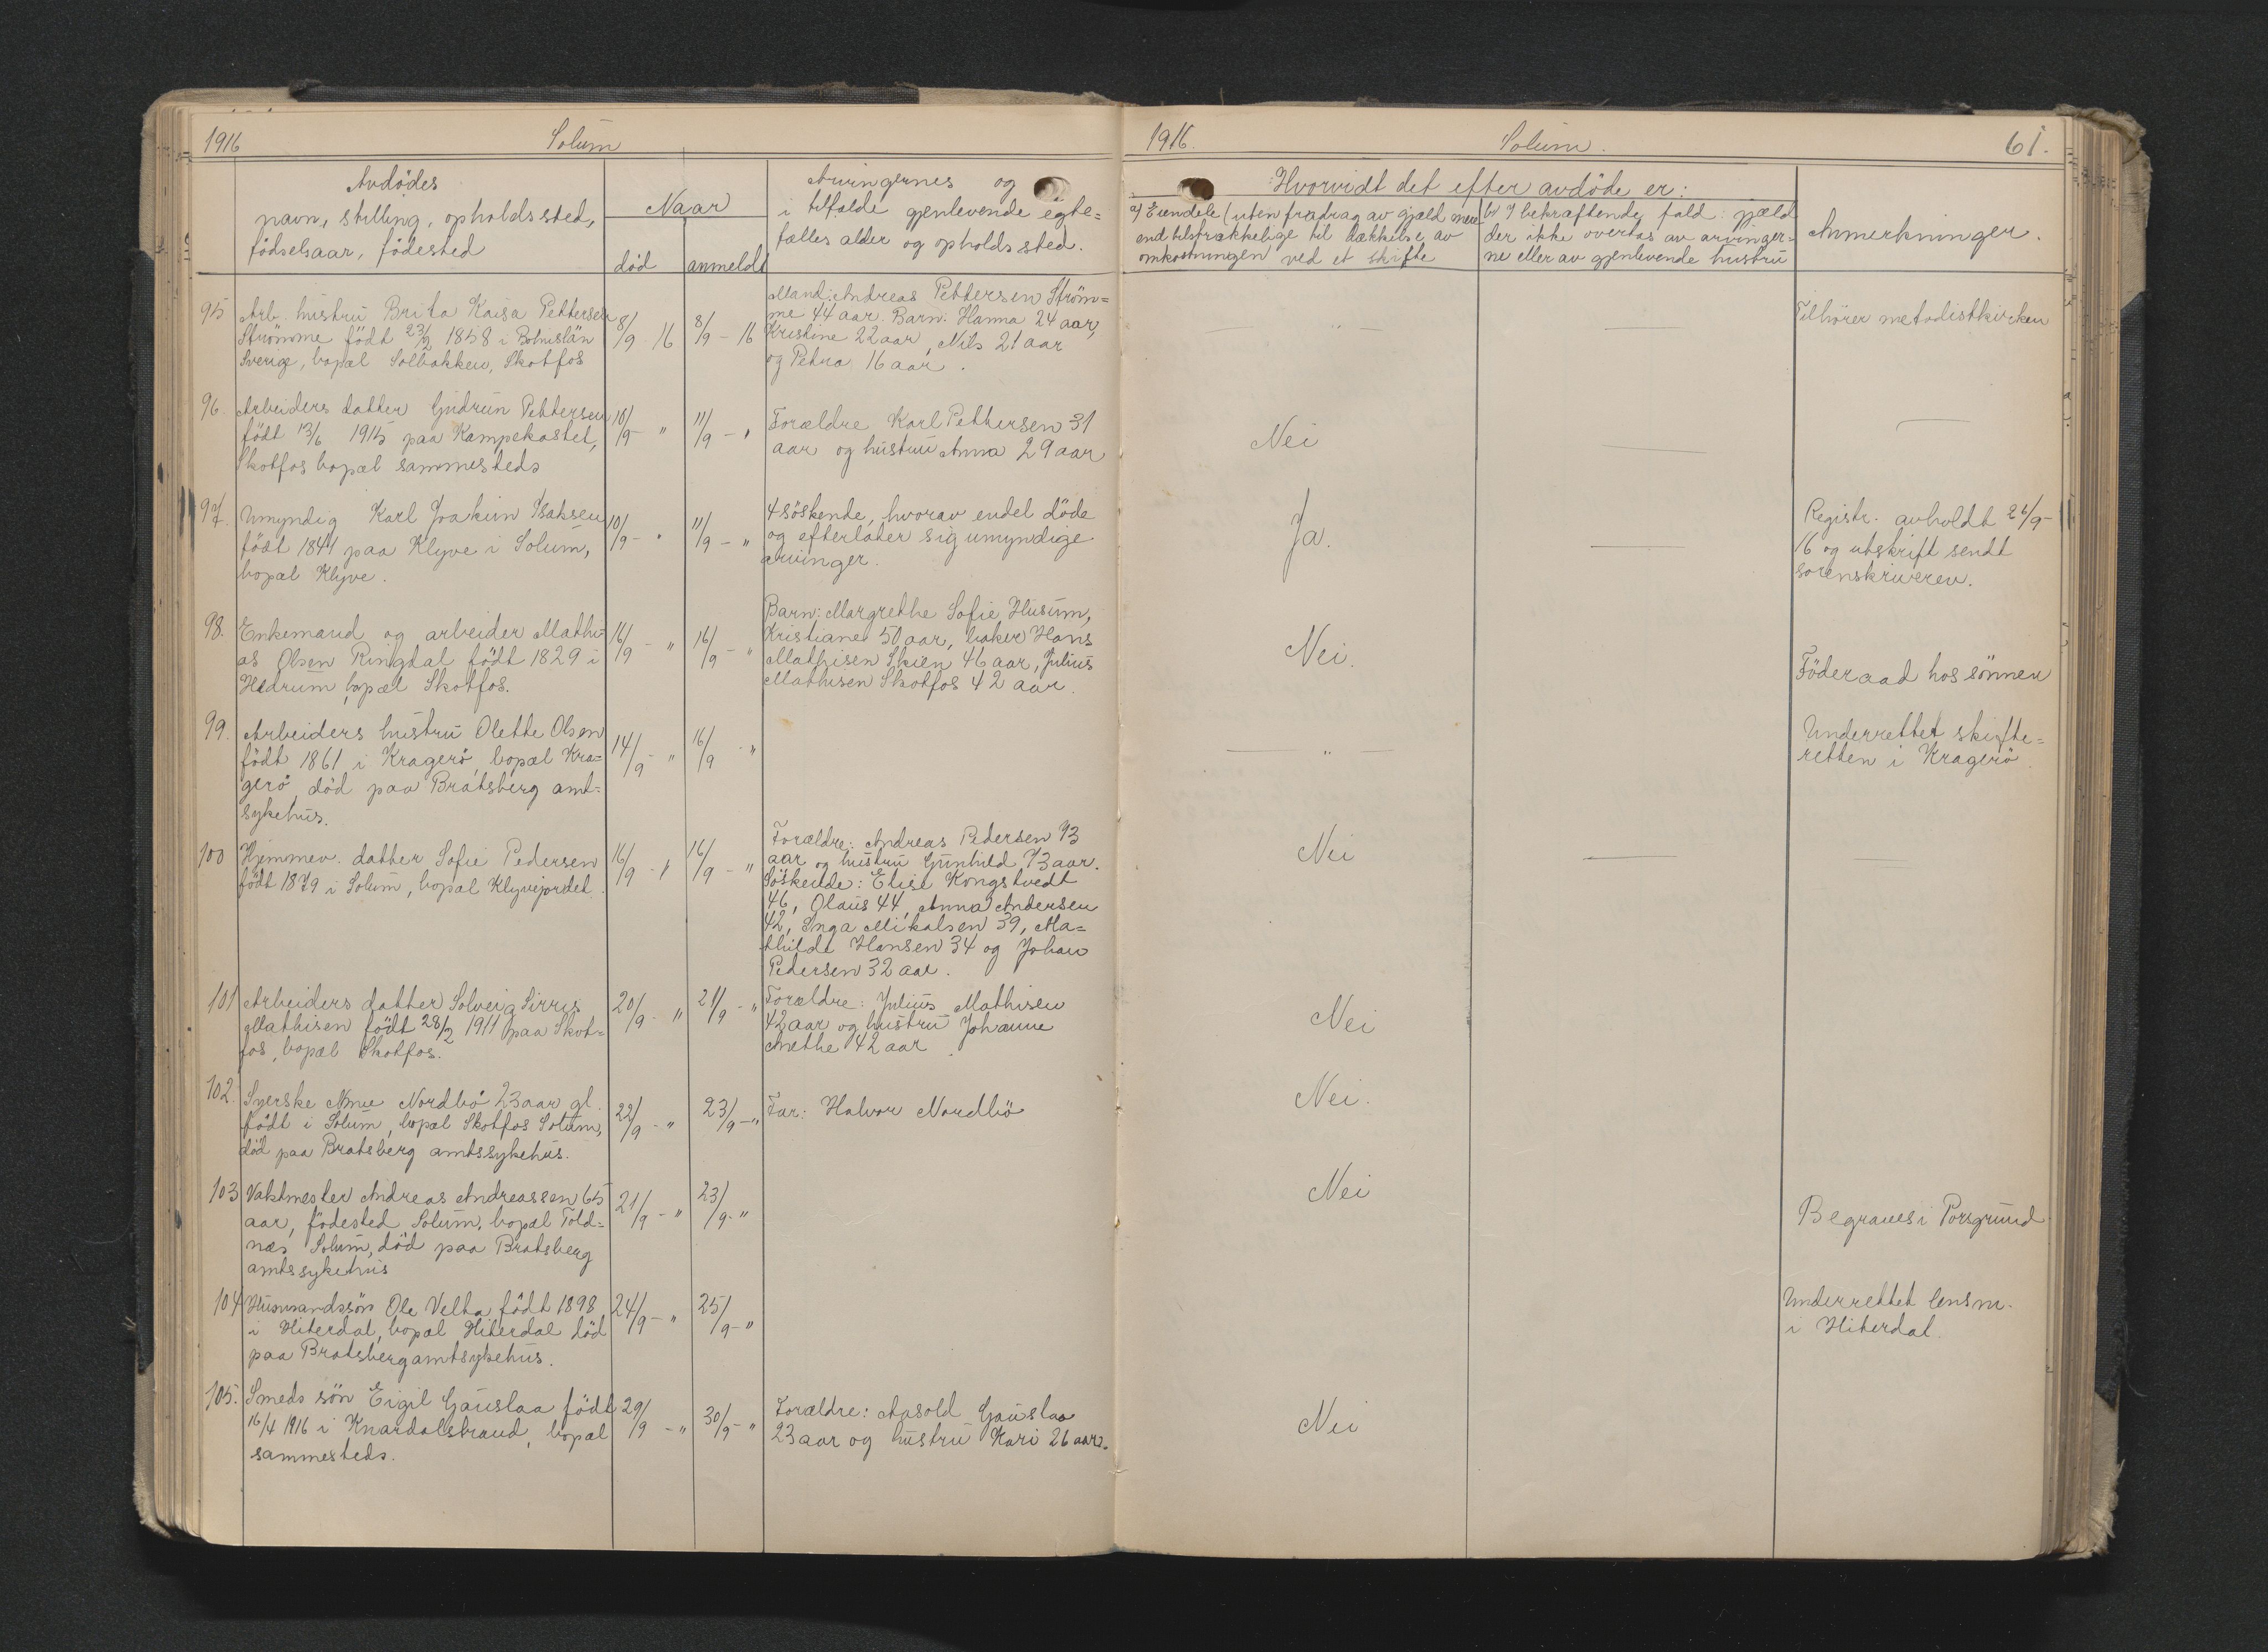 1916
Solum
Avdödes
navn, stilling, opholdssted,
födselsaar, födested
Naar
död
anmeldt
Arvingernes og
i tilfælde gjenlevende egte=
fælles alder og opholdssted.
95
Arb. hustru Brita Kaisa Pettersen
Strömme födt 23/2 1858 i Bohuslän
Sverige, bopæl Solbakken, Skotfos
8/9 16
8/9 - 16
Mand: Andreas Pettersen Ström=
me 44 aar. Barn: Hanna 24 aar,
Kristine 22 aar, Nils 21 aar
og Petra 16 aar.
96.
Arbeiders datter Gudrun Pettersen
födt 13/6 1915 paa Kampekastet,
Skotfos bopæl sammesteds
10/9 - "
11/9 - "
Forældre Karl Pettersen 31
aar og hustru Anna 29 aar
97.
Umyndig Karl Joakim Isaksen
födt 1841 paa Klyve i Solum,
bopæl Klyve.
10/9 - "
11/9 - "
4 söskende, hvorav endel döde
og efterlater sig umyndige
arvinger.
98.
Enkemand og arbeider Mathi=
as Olsen Ringdal födt 1829 i
Hedrum, bopæl Skotfos.
16/9 - "
16/9 - "
Barn: Margrethe Sofie Husum,
Kristiane 50 aar, baker Hans
Mathisen Skien 46 aar, Julius
Mathisen Skotfos 42 aar.
99.
Arbeiders hustru Olette Olsen
födt 1861 i Kragerö, bopæl Kra=
gerö, död paa Bratsberg amt=
sykehus.
14/9 - "
16/9 "
100
Hjemmev. datter Sofie Pedersen
födt 1879 i Solum, bopæl Klyvejordet.
16/9 - "
16/9 - "
Forældre: Andreas Pedersen 73
aar og hustru Gunhild 73 aar.
Söskende: Elise Kongstvedt
46, Olaus 44, Anna Andersen
42, Inga Mikalsen 39, Ma=
thilde Hansen 34 og Johan
Pedersen 32 aar.
101
Arbeiders datter Solveig Sirris
Mathisen födt 28/2 1911 paa Skot=
fos, bopæl Skotfos.
20/9 - "
21/9 - "
Forældre: Julius Mathisen
42 aar og hustru Johanne
Anethe 42 aar.
102.
Syerske Anne Nordbö 23 aar gl.
födt i Solum, bopæl Skotfos Solum,
död paa Bratsberg amtssykehus.
22/9 - "
23/9 - "
Far: Halvor Nordbö
103
Vaktmester Andreas Andreassen 65
aar, födested Solum, bopæl Told=
næs Solum, död paa Bratsberg
amtssykehus
21/9 - "
23/9 - "
104
Husmandssön Ole Velta födt 1898
i Hiterdal, bopæl Hiterdal död
paa Bratsberg amtsykehus.
24/9 - "
25/9 - "
105.
Smeds sön Eigil Gauslaa födt
16/4 1916 i Knardalstrand, bopæl
sammesteds.
29/9 - "
30/9 - "
Forældre: Aasold Gauslaa
23 aar og hustru Kari 26 aar.
1916.
Solum.
61.
Hvorvidt det efter avdöde er:
a) Eiendele (uten fradrag av gjæld mere
end tilstrækkelige til dækkelse av
omkostningen ved et skifte
b) I bekræftende fald: gjæld
der ikke overtas av arvinger=
ne eller av gjenlevende hustru
Anmerkninger.
" —
—
Tilhörer metodistkirken
Nei
—
—
Ja.
—
Registr. avholdt 26/9 -
16 og utskrift sendt
sorenskriveren.
Nei.
Föderaad hos sönnen
— " —
—
Underrettet skifte=
retten i Kragerö
Nei
—
—
Nei
Nei.
Nei
Begraves i Porsgrund
Underrettet lensm.
i Hiterdal.
Nei